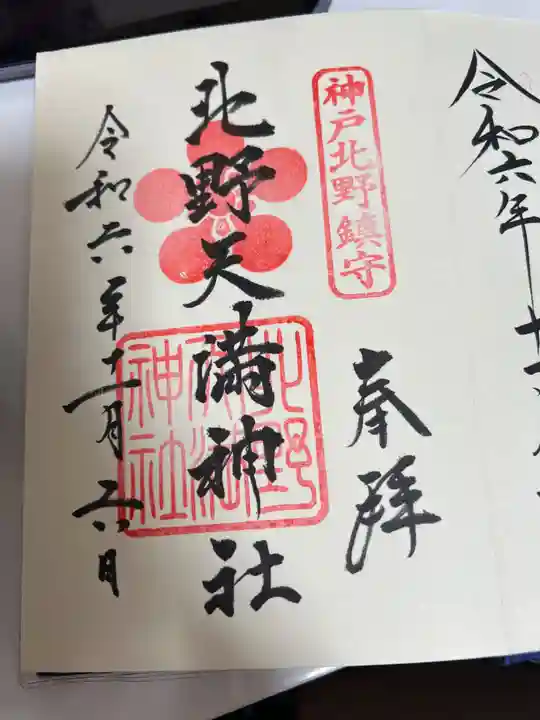 令和六年十
神戸北野鎮守
奉拝
北野天満神社
北野
天満
神社
令和六年十一月六日